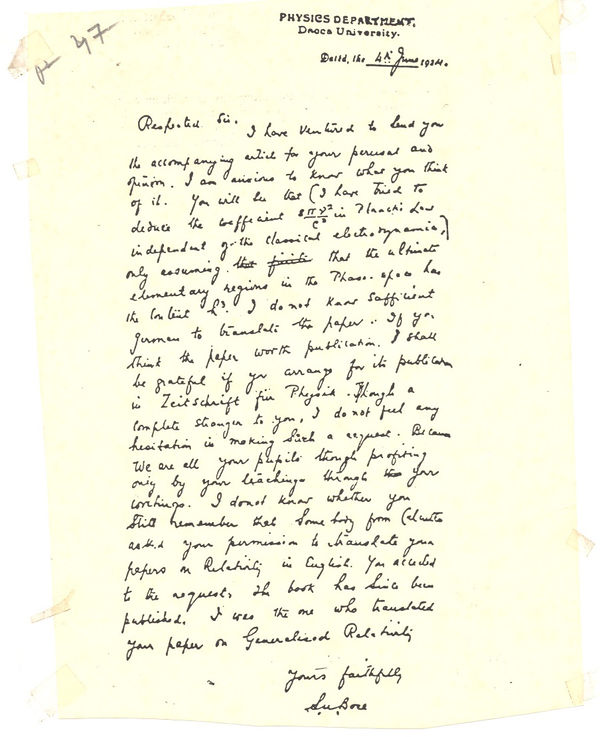 PHYSICS DEPARTMENT,
Dacca University.
Dated, the 4th June 1924.
Respected Sir,
I have ventured to send you
the accompanying article for your perusal and
opinion. I am anxious to know what you think
of it. You will see that (I have tried to
deduce the coefficient 8πν²/c³ in Planck's Law
independent of the classical electrodynamics,)
only assuming that the ultimate
elementary regions in the Phase-space has
the content h³. I do not know sufficient
German to translate the paper. If you
think the paper worth publication, I shall
be grateful if you arrange for its publication
in Zeitschrift für Physik. Though a
complete stranger to you, I do not feel any
hesitation in making such a request. Because
We are all your pupils though profiting
only by your teachings through your
writings. I donot know whether you
Still remember that Somebody from Calcutta
asked your permission to translate your
papers on Relativity in English. You acceded
to the request. The book has since been
published. I was the one who translated
your paper on Generalised Relativity
Yours faithfully
S.N.Bose